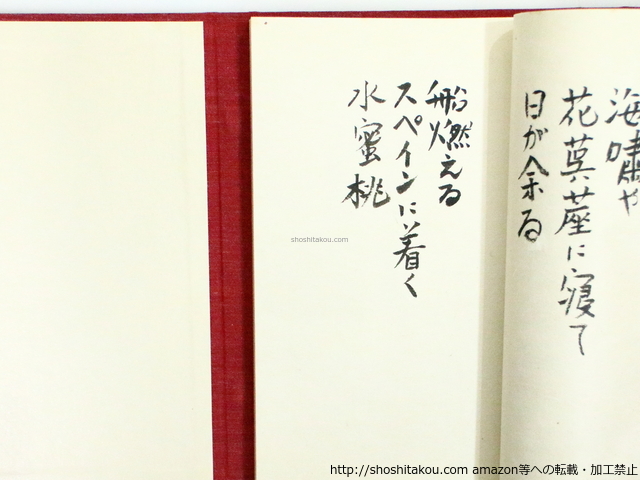 海嘯や
花茣蓙に寝て
日が余る
船燃える
スペインに着く
水蜜桃
shoshitakou.com
http://shoshitakou.com amazon等への転載・加工禁止